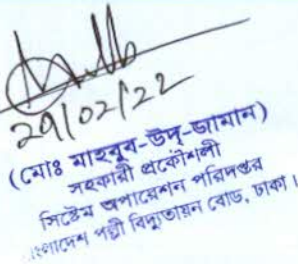 ২৭/০২/২২
(মোঃ মাহবুব-উদ্-জামান)
সহকারী প্রকৌশলী
সিস্টেম অপারেশন পরিদপ্তর
বাংলাদেশ পল্লী বিদ্যুতায়ন বোর্ড, ঢাকা।